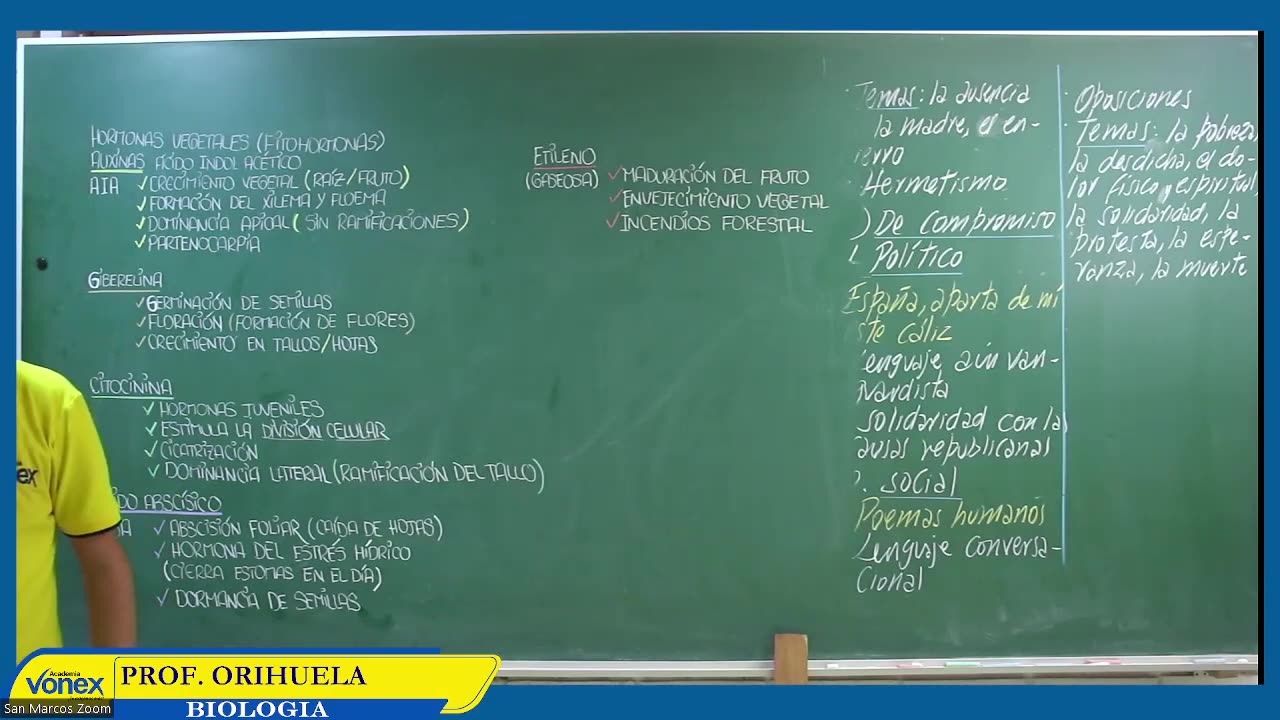 HORMONAS VEGETALES (FITOHORMONAS)
AUXINAS ACIDO INDOL ACÉTICO
AIA ✓CRECIMIENTO VEGETAL (RAÍZ/FRUTO)
✓FORMACIÓN DEL XILEMA Y FLOEMA
✓DOMINANCIA APICAL (SIN RAMIFICACIONES)
✓PARTENOCARPIA
GIBERELINA
✓GERMINACIÓN DE SEMILLAS
✓FLORACIÓN (FORMACIÓN DE FLORES)
✓CRECIMIENTO EN TALLOS/HOJAS
CITOCININA
✓HORMONAS JUVENILES
✓ESTIMULA LA DIVISIÓN CELULAR
✓CICATRIZACIÓN
✓DOMINANCIA LATERAL (RAMIFICACIÓN DEL TALLO)
DO ABSCÍSICO
✓ABSCISIÓN FOLIAR (CAÍDA DE HOJAS)
✓HORMONA DEL ESTRÉS HÍDRICO
(CIERRA ESTOMAS EN EL DÍA)
✓DORMANCIA DE SEMILLAS
ETILENO
(GASEOSA) ✓MADURACIÓN DEL FRUTO
✓ENVEJECIMIENTO VEGETAL
✓INCENDIOS FORESTAL
Temas: la ausencia
la madre, el en-
ierro
Hermetismo
) De compromiso
Político
España, aparta de mí
ste cáliz
enguaje aún van-
uardista
solidaridad con la
ausas republicanas
. social
Poemas humanos
Lenguaje conversa-
cional
Oposiciones
Temas: la pobreza,
la desdicha, el do-
lor físico y espiritual,
la solidaridad, la
protesta, la espe-
ranza, la muerte
ex
Academia
vonex
PROF. ORIHUELA
BIOLOGIA
San Marcos Zoom